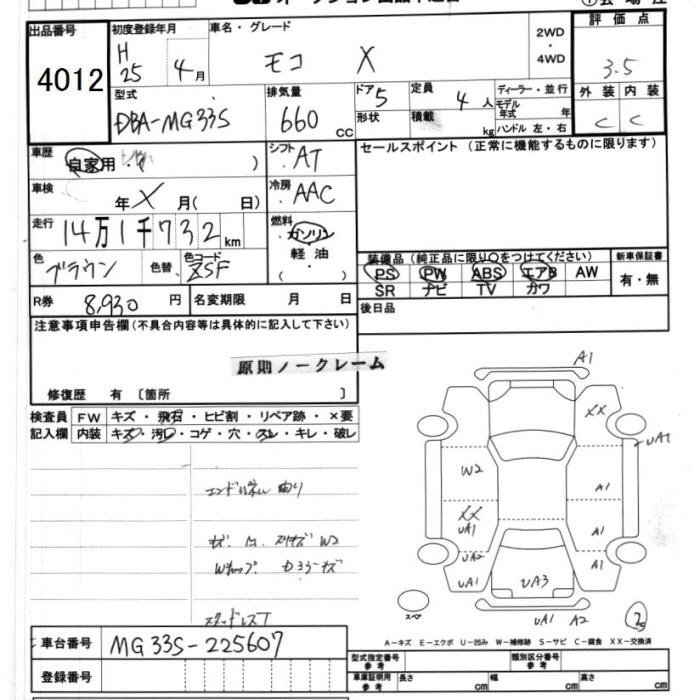 出品番号
4012
初度登録年月
H
25 4月
車名・グレード
モコ X
2WD
・
4WD
評価点
3.5
外装 内装
C C
型式
DBA-MG33S
排気量
660 CC
ドア 5
形状
定員 4 人
積載 kg
ディーラー・並行
モデル
年式 年
ハンドル 左・右
車歴
自家用・ )
シフト
・AT
車検
年 X 月( 日)
冷房
・AAC
走行
14万1千732km
燃料
・ガソリン
軽油
・( )
色
ブラウン
色替
色コード
ZSF
R券 8,930 円
名変期限 月 日
セールスポイント (正常に機能するものに限ります)
装備品 (純正品に限り○をつけてください)
新車保証書
PS PW ABS エアB AW
SR ナビ TV カワ
有・無
後日品
注意事項申告欄(不具合内容等は具体的に記入して下さい)
原則ノークレーム
修復歴 有 〔箇所 〕
検査員 FW キズ・飛石・ヒビ割・リペア跡・×要
記入欄 内装 キズ・汚れ・コゲ・穴・スレ・キレ・破レ
W2
スタッドレスT
A1
XX
UA1
W2
A1
XX
UA1
A1
UA2
A1
UA1
UA3
UA1 A2
スペア
A-キズ E-エクボ U-凹み W-補修跡 S-サビ C-腐食 XX-交換済
車台番号 MG33S-225607
登録番号
型式指定番号
参考
類別区分番号
参考
車庫証明用
参考
長さ cm 幅 cm 高さ cm